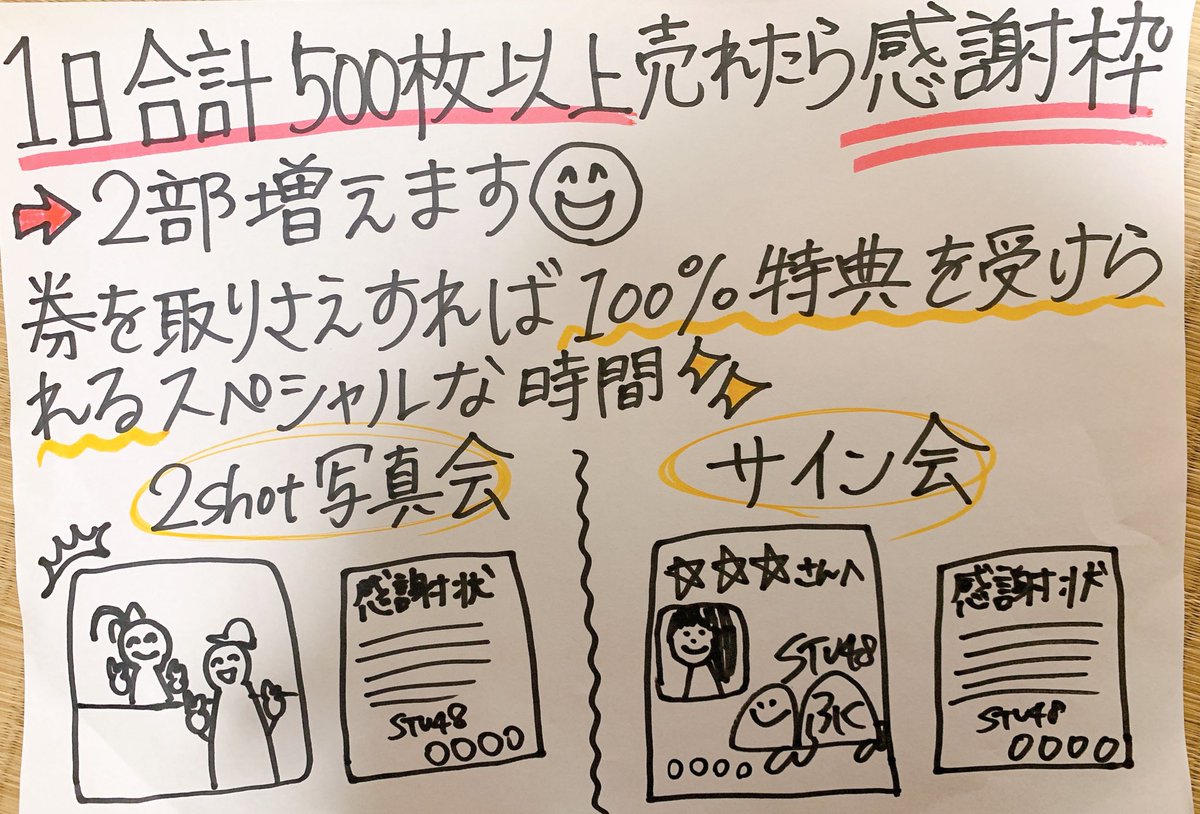 1日合計500枚以上売れたら感謝枠
2部増えます
券を取りさえすれば100%特典を受けら
れるスペシャルな時間
2shot写真会
サイン会
感謝状
STU48
○○○○
☆☆☆さんへ
STU48
○○○○
感謝状
STU48
○○○○